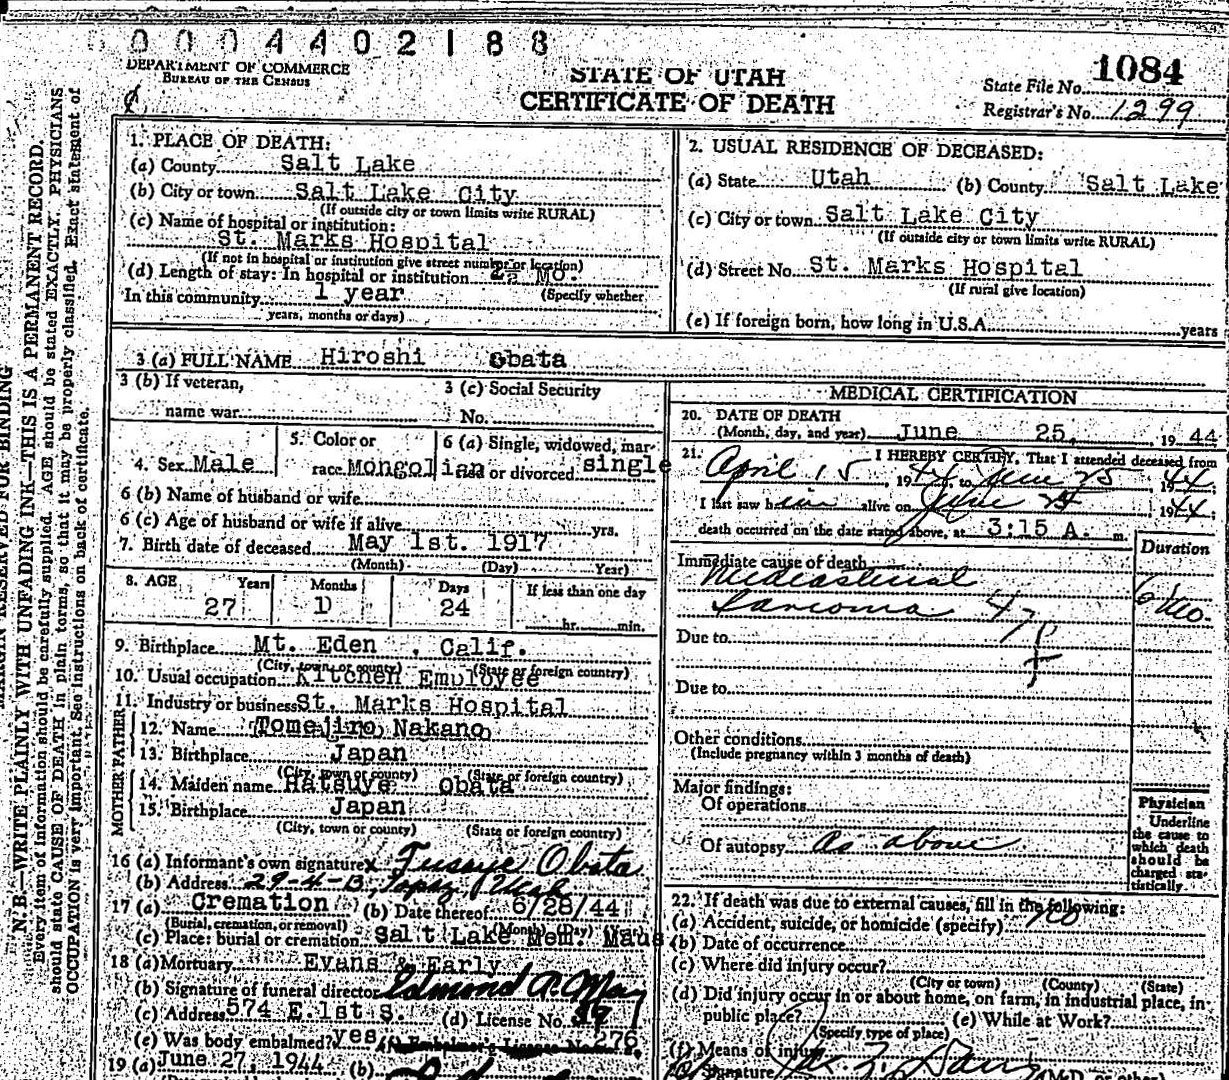 0 0 0 4 4 0 2 1 8 8
DEPARTMENT OF COMMERCE
BUREAU OF THE CENSUS
STATE OF UTAH
CERTIFICATE OF DEATH
State File No. 1084
Registrar's No. 1299
MARGIN RESERVED FOR BINDING
N. B.—WRITE PLAINLY WITH UNFADING INK—THIS IS A PERMANENT RECORD.
Every item of information should be carefully supplied. AGE should be stated EXACTLY. PHYSICIANS
should state CAUSE OF DEATH in plain terms, so that it may be properly classified. Exact statement of
OCCUPATION is very important. See instructions on back of certificate.
1. PLACE OF DEATH:
(a) County Salt Lake
(b) City or town Salt Lake City
(If outside city or town limits write RURAL)
(c) Name of hospital or institution:
St. Marks Hospital
(If not in hospital or institution give street number or location)
(d) Length of stay: In hospital or institution Mo.
In this community 1 year (Specify whether
years, months or days)
2. USUAL RESIDENCE OF DECEASED:
(a) State Utah (b) County Salt Lake
(c) City or town Salt Lake City
(If outside city or town limits write RURAL)
(d) Street No. St. Marks Hospital
(If rural give location)
(e) If foreign born, how long in U.S.A. years
3 (a) FULL NAME Hiroshi Obata
3 (b) If veteran,
name war
3 (c) Social Security
No.
4. Sex Male
5. Color or
race Mongolian
6 (a) Single, widowed, mar-
or divorced single
6 (b) Name of husband or wife
6 (c) Age of husband or wife if alive yrs.
7. Birth date of deceased May 1st. 1917
(Month) (Day) Year)
8. AGE Years Months Days If less than one day
27 1 24 hr. min.
9. Birthplace Mt. Eden , Calif.
(City, town or county) (State or foreign country)
10. Usual occupation Kitchen Employee
11. Industry or business St. Marks Hospital
FATHER
12. Name Tomejiro Nakano
13. Birthplace Japan
(City, town or county) (State or foreign country)
MOTHER
14. Maiden name Hatsuye Obata
15. Birthplace Japan
(City, town or county) (State or foreign country)
16 (a) Informant's own signature x Fusaye Obata
(b) Address 29-4-B, Topaz, Utah
17 (a) Cremation (b) Date thereof 6/28/44
(Burial, cremation, or removal) (Month) (Day) (Year)
(c) Place: burial or cremation Salt Lake Mem. Maus
18 (a) Mortuary Evans & Early
(b) Signature of funeral director Edmond A. May
(c) Address 574 E. 1st S. (d) License No.
(e) Was body embalmed? yes 276
19 (a) June 27, 1944 (b)
MEDICAL CERTIFICATION
20. DATE OF DEATH
(Month, day, and year) June 25, 1944
21. I HEREBY CERTIFY, That I attended deceased from
April 15, 1944 to June 25 1944
I last saw him alive on June 25 1944;
death occurred on the date stated above, at 3:15 A. m.
Duration
Immediate cause of death
Mediastinal
Sarcoma 6 Mo.
Due to
Due to
Other conditions
(Include pregnancy within 3 months of death)
Major findings:
Of operations
Of autopsy as above
Physician
Underline
the cause to
which death
should be
charged sta-
tistically.
22. If death was due to external causes, fill in the following:
(a) Accident, suicide, or homicide (specify) no
(b) Date of occurrence
(c) Where did injury occur?
(City or town) (County) (State)
(d) Did injury occur in or about home, on farm, in industrial place, in
public place? (e) While at Work?
(Specify type of place)
(f) Means of injury
Signature